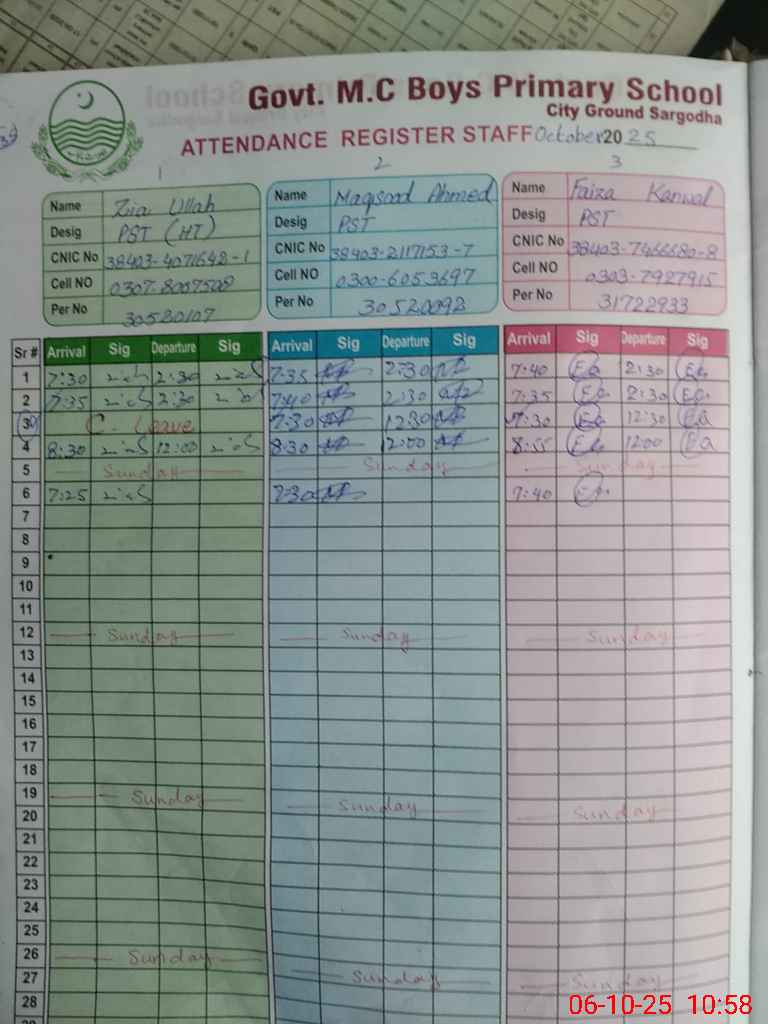 Govt. M.C Boys Primary School
City Ground Sargodha
ATTENDANCE REGISTER STAFF October 2025
1 2 3
Name Zia Ullah Name Maqsood Ahmed Name Faiza Kanwal
Desig PST (HT) Desig PST Desig PST
CNIC No 38403-4071648-1 CNIC No 38403-2117153-7 CNIC No 38403-7466680-8
Cell NO 0307-8007508 Cell NO 0300-6053697 Cell NO 0303-7927915
Per No 30580107 Per No 30520092 Per No 31722933
Sr # Arrival Sig Departure Sig Arrival Sig Departure Sig Arrival Sig Departure Sig
1 7:30 2:30 7:35 2:30 7:40 2:30
2 7:35 2:30 7:40 2:30 7:35 2:30
3 C. Leave 7:30 12:30 7:30 12:30
4 8:30 12:00 8:30 12:00 8:55 12:00
5 Sunday Sunday Sunday
6 7:25 7:30 7:40
7
8
9
10
11
12 Sunday Sunday Sunday
13
14
15
16
17
18
19 Sunday Sunday Sunday
20
21
22
23
24
25
26 Sunday Sunday Sunday
27
28
06-10-25 10:58